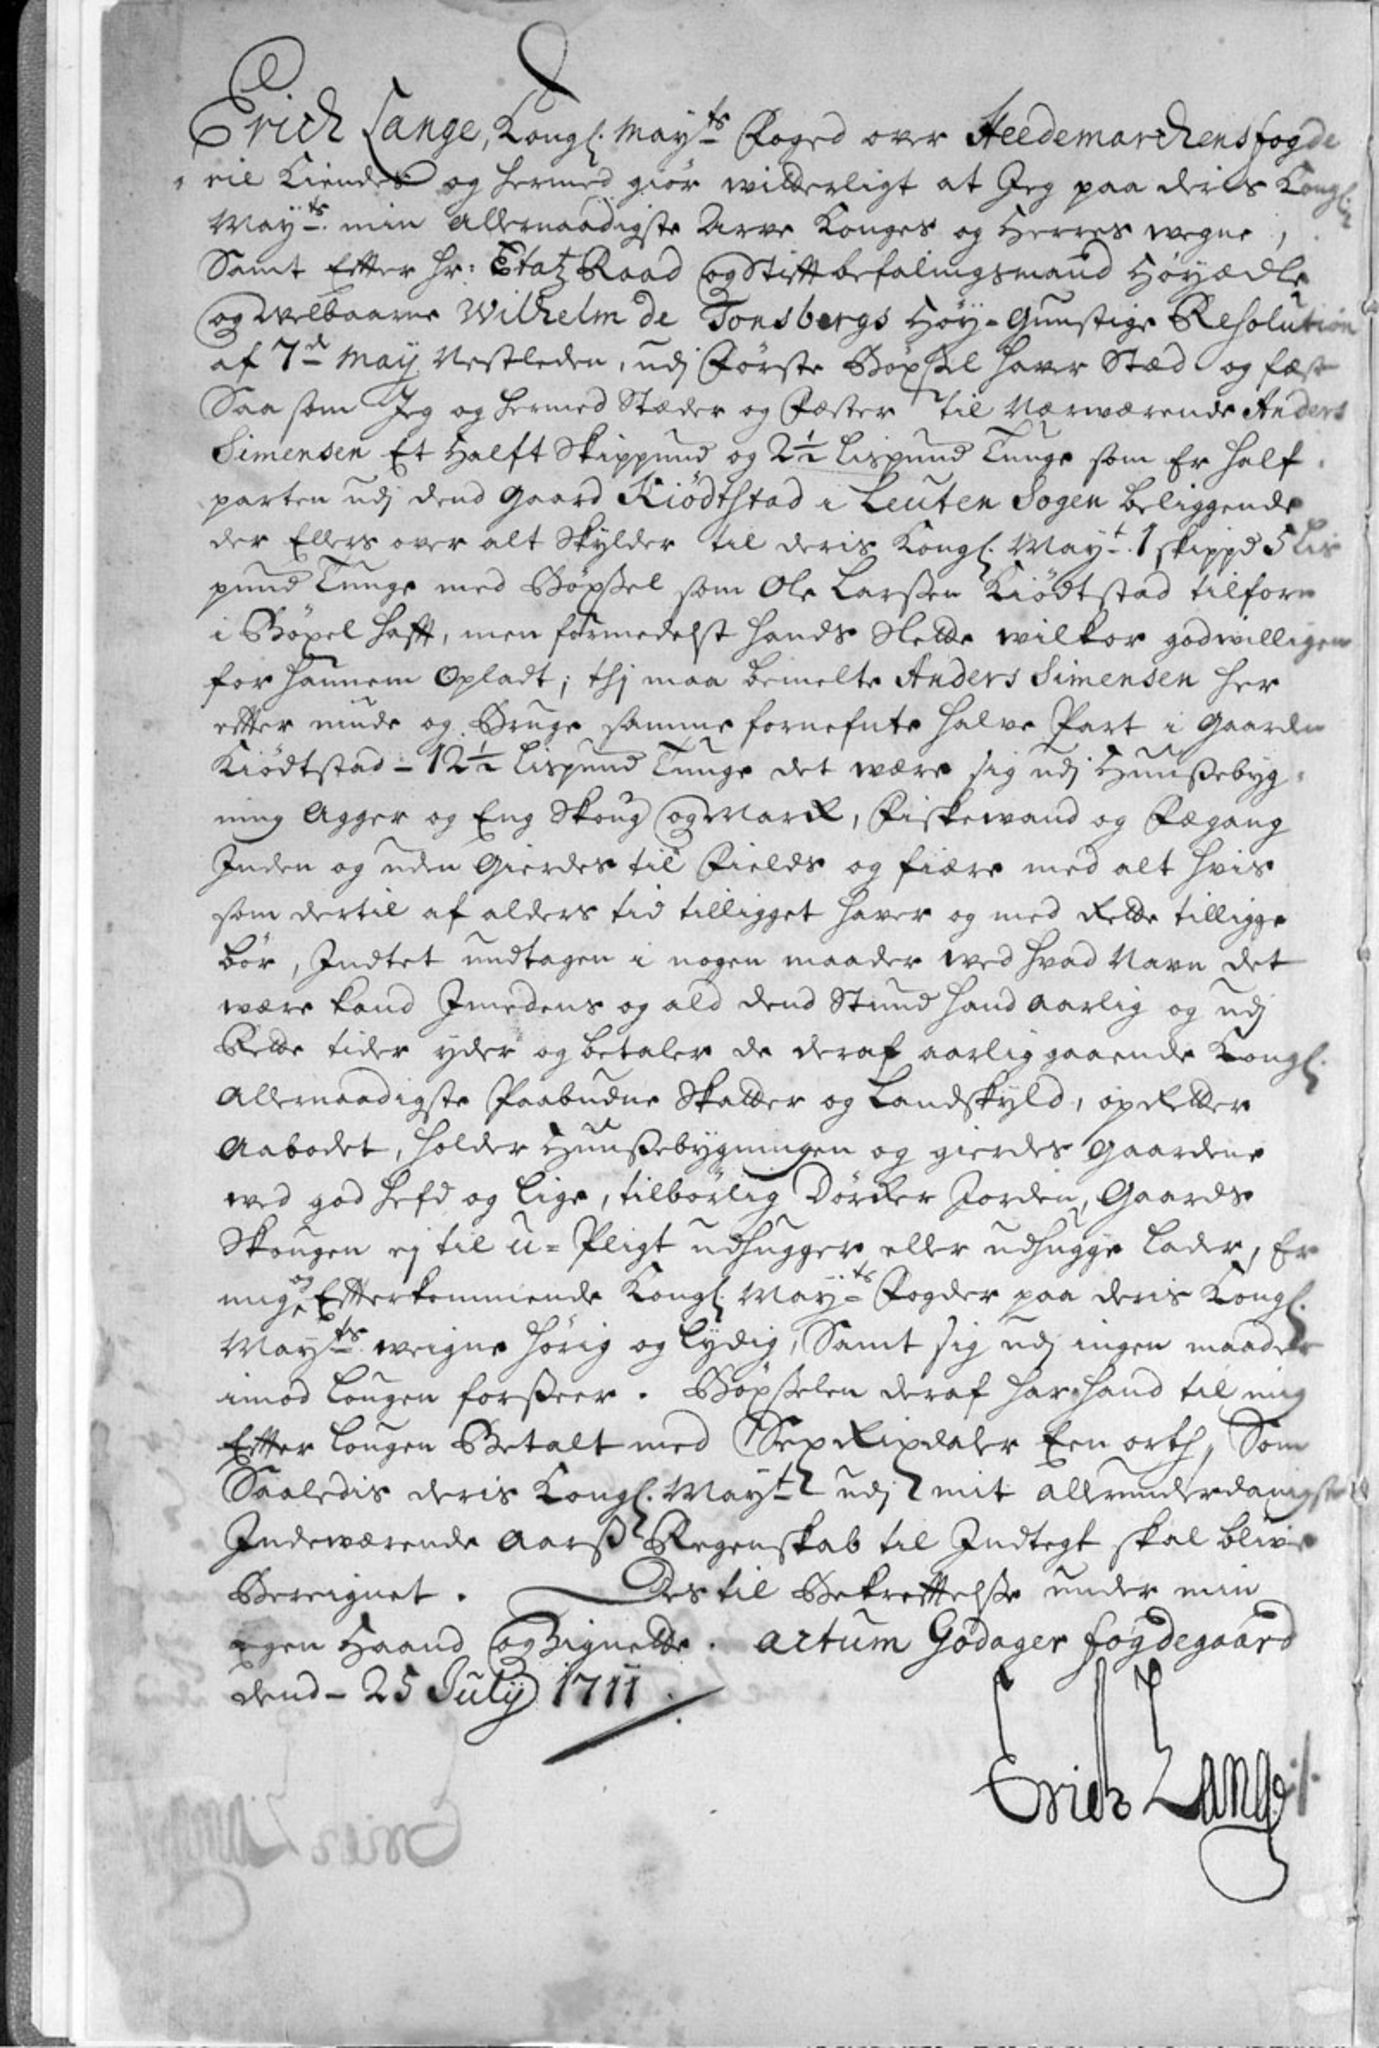 Erich Lange, Kongl. Mayts Foged over Heedemarchens fogde
rie Kiendes og hermed giör witterligt at Jeg paa deris Kongl.
Mayts. min Allernaadigste Arve Konges og Herres wegne,
Samt Efter Hr: Etatz Raad og Stiftbefalingsmand Höyædle
og Welbaarne Wilhelm de Tonsbergs Höy-Gunstige Resolution
af 7d May Nestleden, udj Förste Böxsel haver Stæd og fæst
Saa som Jeg og hermed Stæder og Fæster til Nærværende Anders
Simensen Et Halft Skippund og 2½ Lispund Tunge som Er half
parten udj dend Gaard Kiödtstad i Leuten Sogen beliggende
der Ellers over alt Skylder til deris Kongl. Mayt. 1 skippd 5 Lis
pund Tunge med Böxsel som Ole Larsen Kiödtstad tilforn
i Böxel hafft, men formedelst hands Slette wilkor godwilligen
for hannem Opladt; thj maa bemelte Anders Simensen her
efter niude og Bruge samme fornefnte halve Part i Gaarden
Kiödtstad - 12½ Lispund Tunge det være sig udj Huusebyg-
ning Agger og Eng Skoug og Mark, Fiskewand og Fægang
Inden og uden Gierdes til Fields og fiære med alt hvis
som dertil af alders tid tilligget haver og med Rette tilligge
bör, Indtet undtagen i nogen maader wed hvad Navn det
være kand Imedens og ald dend Stund hand aarlig og udj
Rette tider yder og betaler de deraf aarlig gaaende Kongl.
Allernaadigste Paabudne Skatter og Landskyld, opRetter
Aabodet, holder Huusebygningen og gierdes Gaardene
wed god hefd og lige, tilbörlig Dörker Jorden, Gaards
Skougen ej til u=Pligt udhugger eller udhugge lader, Er
mig og Efterkommende Kongl. Mayts Fogder paa deris Kongl.
Mayts. weigne hörig og lydig, Samt sig udj ingen maader
imod Lougen forseer. Böxselen deraf har hand til mig
Efter Lougen Betalt med Sex Rixdaler Een orth, Som
Saaledis deris Kongl. Mayt udj mit allerunderdanigste
Indeværende Aars Regenskab til Indtegt skal blive
Bereignet. Des til Bekreftelse under min
egen Haand og Signette. Actum Godager fogdegaard
dend - 25 July 1711.
Erich Lange